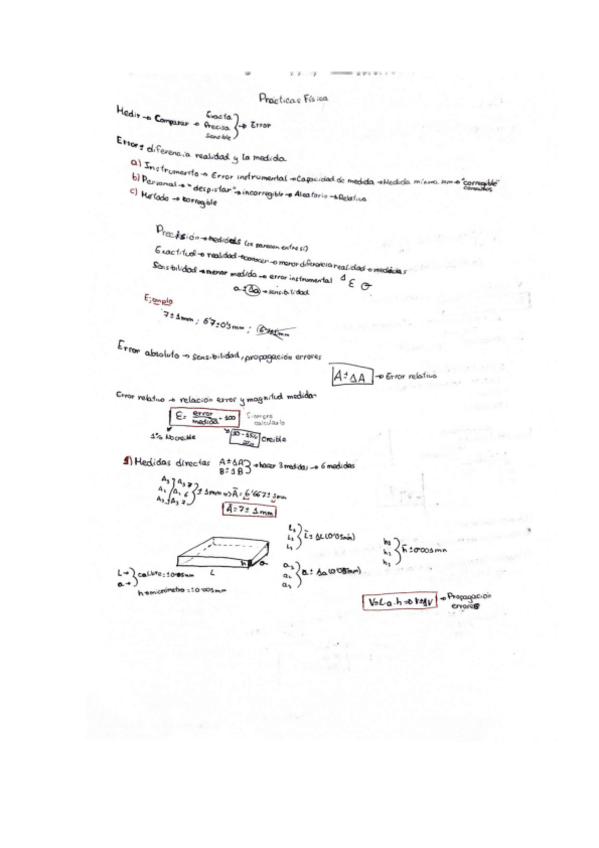 Prácticas Física
Medir → Comparar → Exacta
Precisa
Sensible
→ Error
Error = diferencia realidad y la medida
a) Instrumento → Error instrumental → Capacidad de medida → Medida mínima mm → "corregible"
b) Personal → "despistar" → incorregible → Aleatorio → Relativo
c) Método → corregible
Precisión → medidas (se parecen entre sí)
Exactitud → realidad → conocer → menor diferencia realidad → medidas
Sensibilidad → menor medida → error instrumental Δ ε σ
a ± Δa → sensibilidad
Ejemplo
7 ± 1mm ; 6'7 ± 0'5mm ;
Error absoluto → sensibilidad, propagación errores
A ± ΔA → Error relativo
Error relativo → relación error y magnitud medida
E = error/medida · 100 Siempre calcularlo
1% No creíble
Creíble
1) Medidas directas A ± ΔA
B ± ΔB
→ hacer 3 medidas → 6 medidas
± 1mm ⇒ Ā = 6'667 ± 1mm
A = 7 ± 1 mm
L₁
L₂
L₃
L̄ ± ΔL (0'05mm)
h₁
h₂
h₃
h̄ ± 0'005mm
h
a
L
a₁
a₂
a₃
ā ± Δa (0'05mm)
L →
a →
calibre = ± 0'05mm
h → micrómetro = ± 0'005mm
V = L · a · h ⇒ V ± ΔV → Propagación
errores